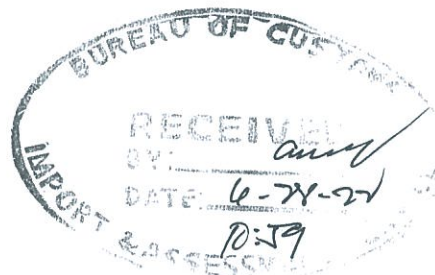 BUREAU OF CUSTOMS
RECEIVED
BY:
DATE: 6-28-22
10:59
IMPORT & ASSESSM